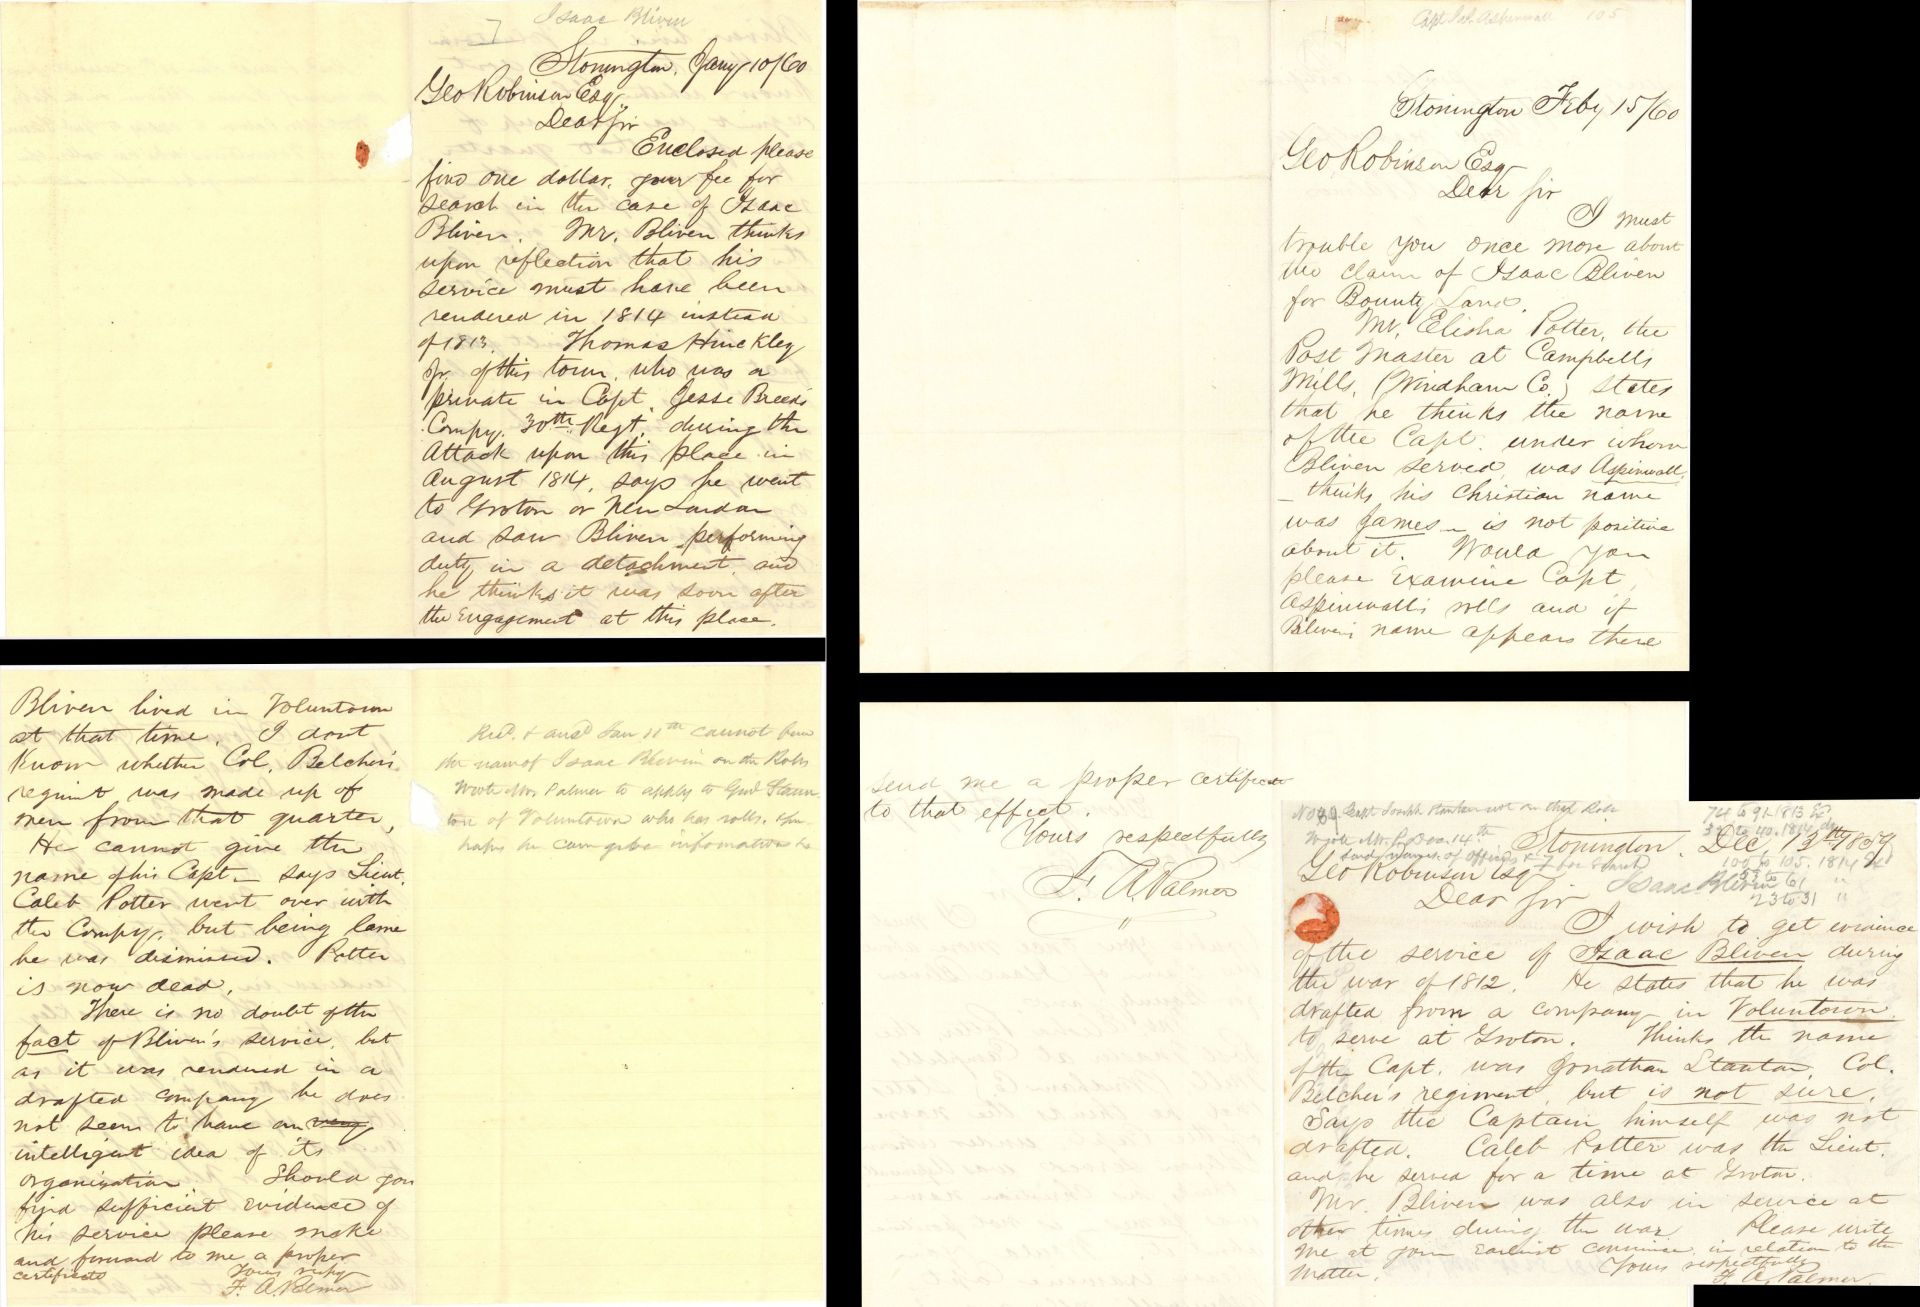 Isaac Bliven
Stonington, Jany 10/60
Geo Robinson Esq.
Dear Sir
Enclosed please
find one dollar, your fee for
search in the case of Isaac
Bliven. Mr. Bliven thinks
upon reflection that his
service must have been
rendered in 1814 instead
of 1813. Thomas Hinckley
Jr. of this town, who was a
private in Capt. Jesse Breed's
Compy. 30th Regt. during the
Attack upon this place in
August 1814, says he went
to Groton or New London
and saw Bliven performing
duty in a detachment, and
he thinks it was soon after
the Engagement at this place.
Bliven lived in Voluntown
at that time. I dont
Know whether Col. Belcher's
regiment was made up of
men from that quarter,
He cannot give the
name of his Capt - says Lieut.
Caleb Potter went over with
the Compy, but being lame
he was dismissed. Potter
is now dead.
There is no doubt of the
fact of Bliven's service, but
as it was rendered in a
drafted company he does
not seem to have an very
intelligent idea of its
organization. Should you
find sufficient evidence of
his service please make
and forward to me a proper
certificate
Yours respy
F. A. Palmer
Recd. & ansd Jan 11th cannot find
the name of Isaac Bliven on the Rolls
Wrote Mr Palmer to apply to Genl Stan-
ton of Voluntown who has rolls. &
perhaps he can give information &c
Capt Jas. Aspinwall 105
Stonington Feby 15/60
Geo Robinson Esq
Dear Sir
I must
trouble you once more about
the claim of Isaac Bliven
for Bounty Land.
Mr. Elisha Potter, the
Post Master at Campbells
Mills, (Windham Co.) states
that he thinks the name
of the Capt. under whom
Bliven served, was Aspinwall,
- thinks his Christian name
was James - is not positive
about it. Would you
please Examine Capt.
Aspinwall's rolls and if
Bliven's name appears there
send me a proper certificate
to that effect.
Yours respectfully
F. A. Palmer
Capt Joseph Stanton not on the Rolls
Wrote Mr P. Dec. 14th
74 to 91. 1813
to 40. 1814
100 to 105. 1814
to 61 "
23 to 31 "
Stonington. Dec, 13th 1859
Geo Robinson Esq
Isaac Bliven
Dear Sir
I wish to get evidence
of the service of Isaac Bliven during
the war of 1812. He states that he was
drafted from a company in Voluntown
to serve at Groton. Thinks the name
of the Capt. was Jonathan Stanton, Col.
Belcher's regiment, but is not sure.
Says the Captain himself was not
drafted. Caleb Potter was the Lieut.
and he served for a time at Groton.
Mr. Bliven was also in service at
other times during the war. Please write
me at your earliest convnince, in relation to the
matter.
Yours respectfully
F. A. Palmer